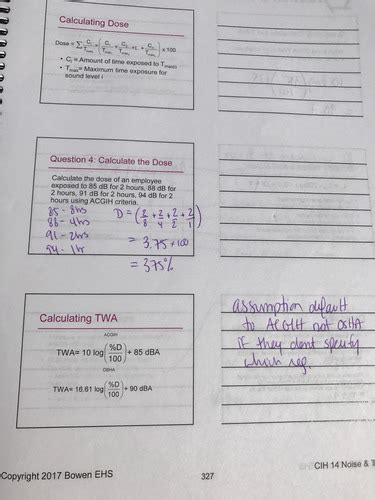 Calculating Dose
Dose = ∑ Ci/Tmaxi = (C1/Tmax1 + C2/Tmax2 + ... + Cn/Tmaxn) x 100
• Ci = Amount of time exposed to Tmax(i)
• Tmax = Maximum time exposure for
sound level i
Question 4: Calculate the Dose
Calculate the dose of an employee
exposed to 85 dB for 2 hours, 88 dB for
2 hours, 91 dB for 2 hours, 94 dB for 2
hours using ACGIH criteria.
85 - 8hrs
88 - 4hrs
91 - 2hrs
94 - 1hr
D = (2/8 + 2/4 + 2/2 + 2/1)
= 3.75 x 100
= 375%
Calculating TWA
ACGIH
TWA= 10 log (%D/100) + 85 dBA
OSHA
TWA= 16.61 log (%D/100) + 90 dBA
assumption default
to ACGIH not OSHA
if they dont specify
which reg.
Copyright 2017 Bowen EHS
327
CIH 14 Noise & T